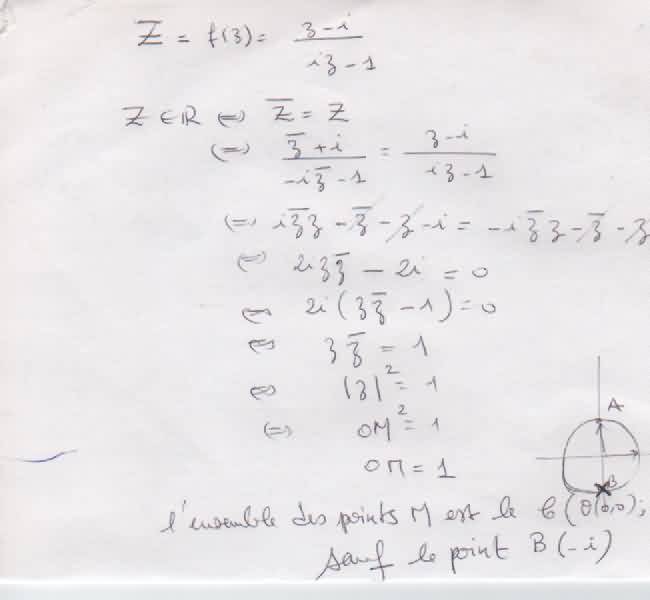 Z = f(z) = (z - i)/(iz - 1)
Z ∈ ℝ ⇔ Z̄ = Z
⇔ (z̄ + i)/(-iz̄ - 1) = (z - i)/(iz - 1)
⇔ iz̄z - z̄ - z - i = -iz̄z - z̄ - z
⇔ 2izz̄ - 2i = 0
⇔ 2i(zz̄ - 1) = 0
⇔ zz̄ = 1
⇔ |z|² = 1
⇔ OM² = 1
OM = 1
A
B
l'ensemble des points M est le C(O(0,0);
sauf le point B(-i)